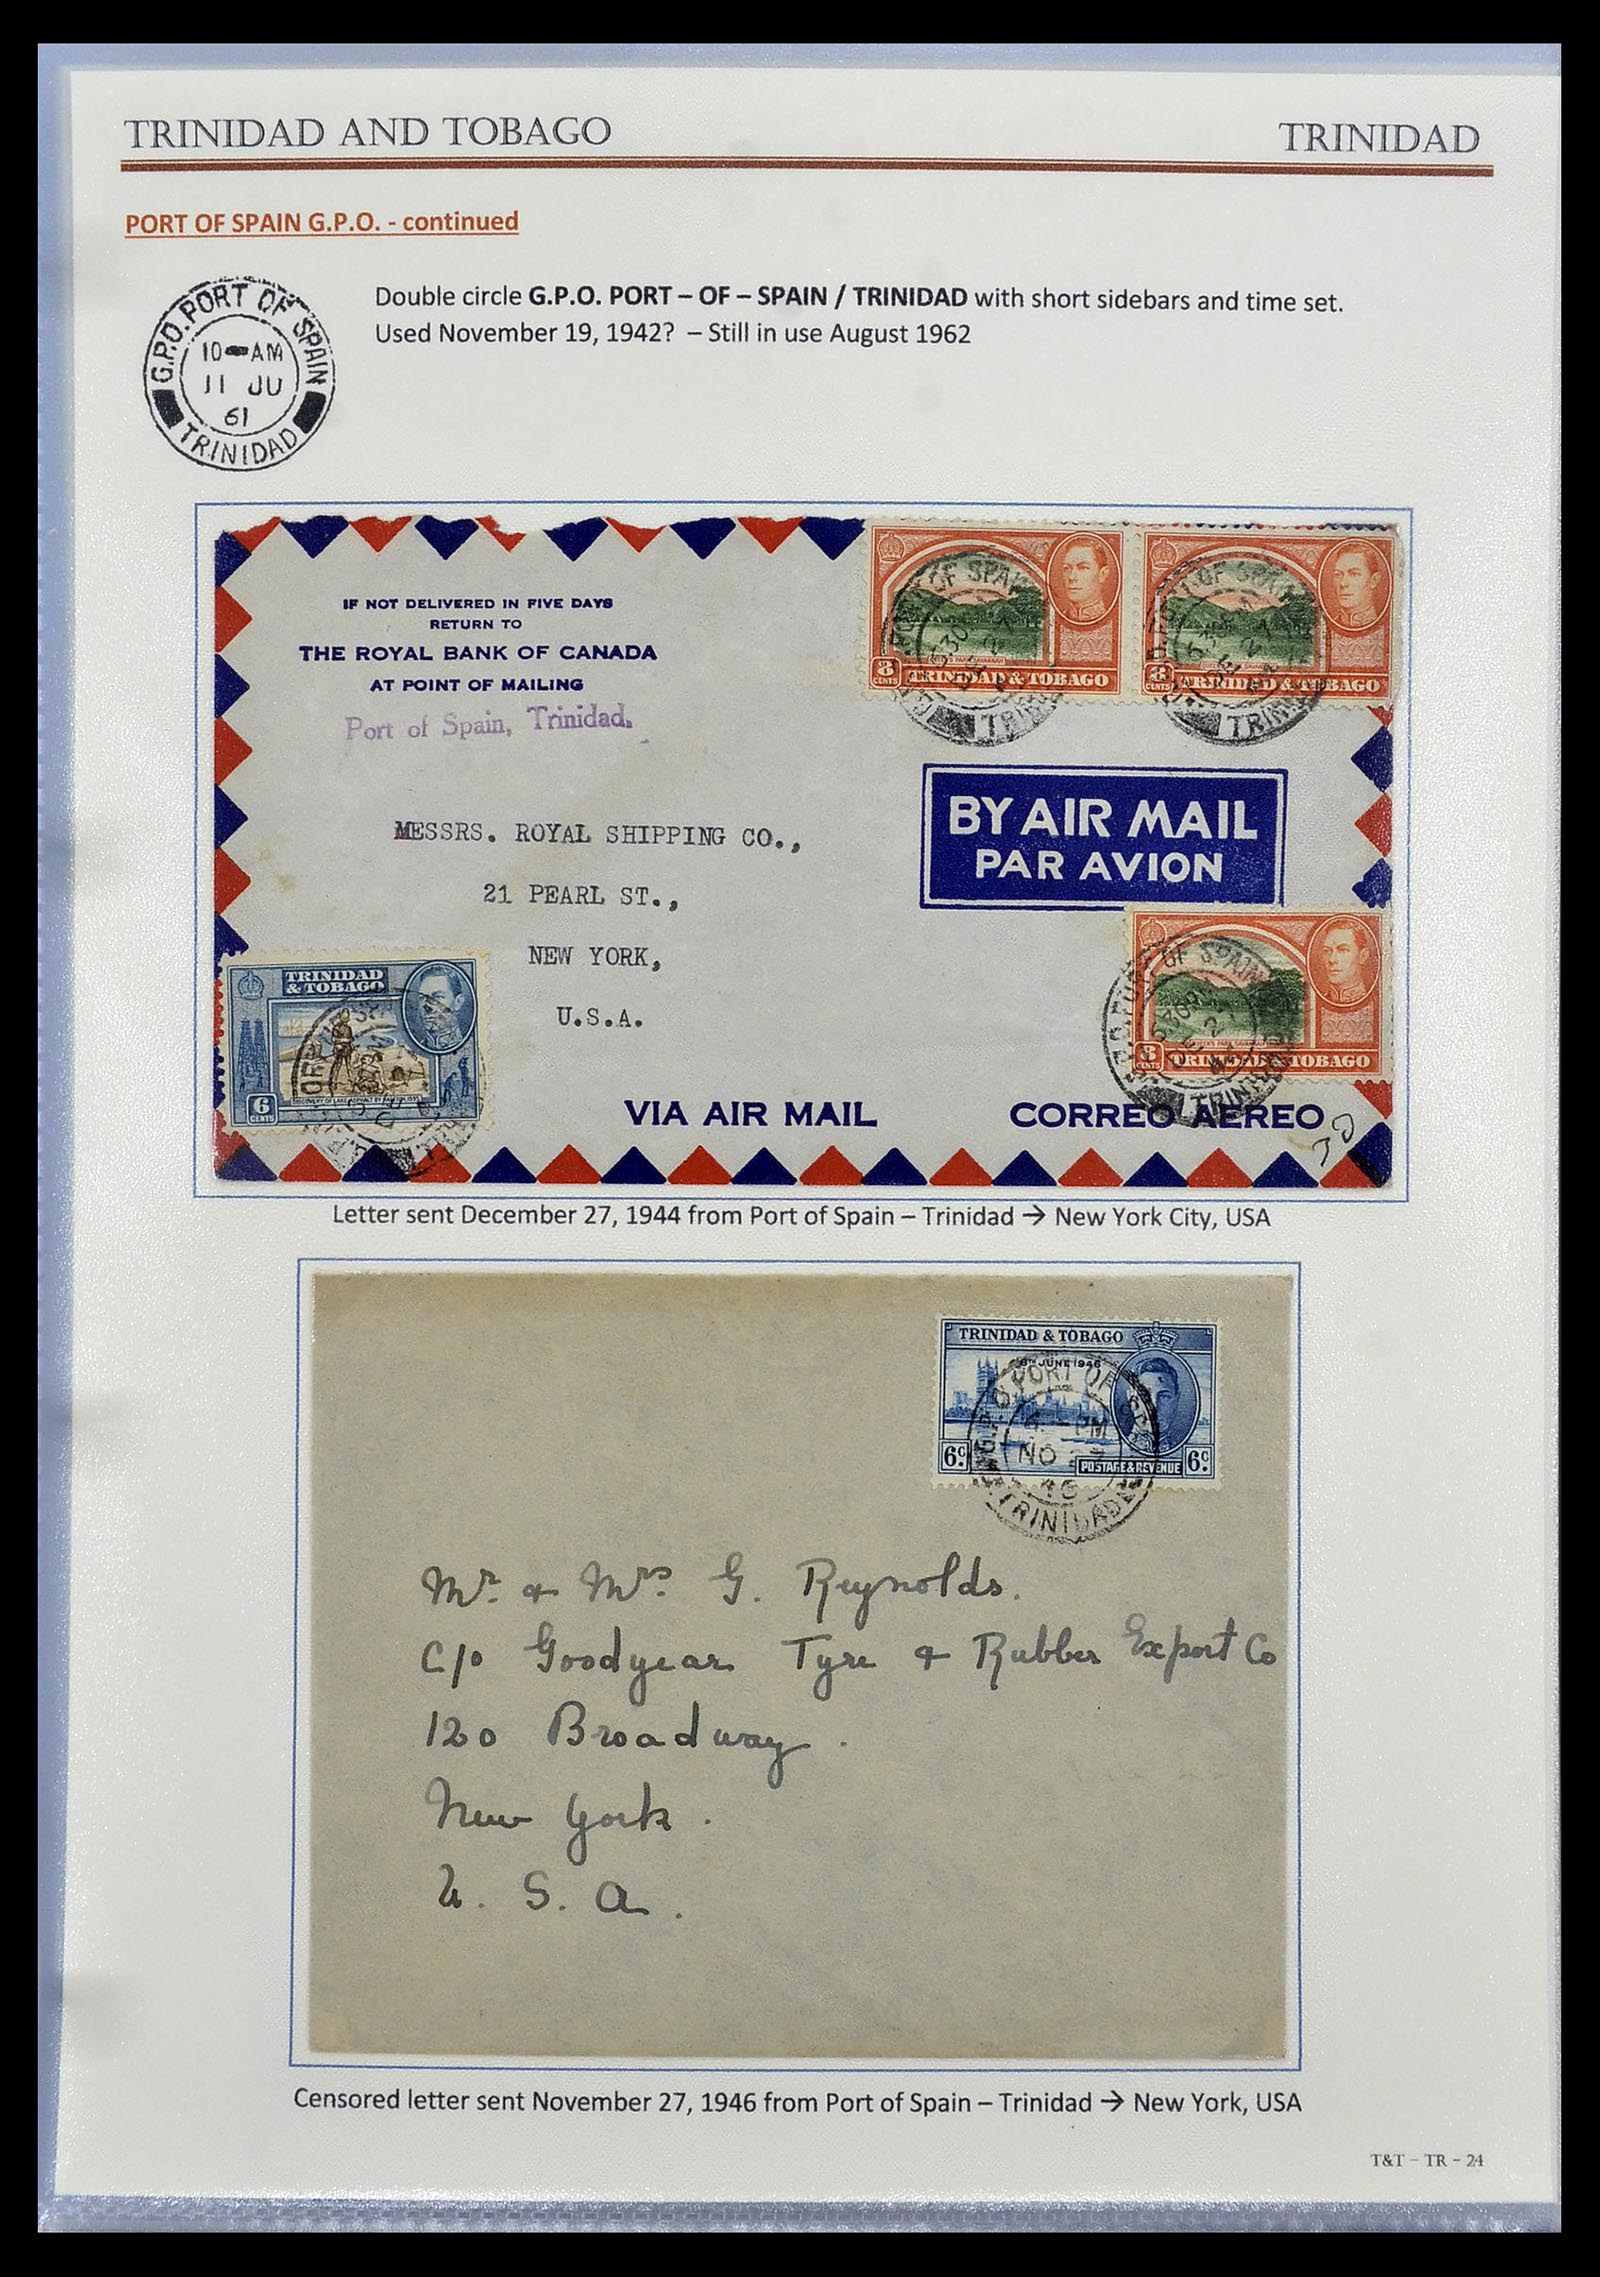 TRINIDAD AND TOBAGO
TRINIDAD
PORT OF SPAIN G.P.O. - continued
G.P.O. PORT OF SPAIN
10 AM
11 JU
61
TRINIDAD
Double circle G.P.O. PORT – OF – SPAIN / TRINIDAD with short sidebars and time set.
Used November 19, 1942? – Still in use August 1962
IF NOT DELIVERED IN FIVE DAYS
RETURN TO
THE ROYAL BANK OF CANADA
AT POINT OF MAILING
Port of Spain, Trinidad.
MESSRS. ROYAL SHIPPING CO.,
21 PEARL ST.,
NEW YORK,
U.S.A.
OF SPAIN
TRINIDAD & TOBAGO
8 CENTS
TRINIDAD & TOBAGO
8 CENTS
BY AIR MAIL
PAR AVION
OF SPAIN
TRINIDAD & TOBAGO
8 CENTS
TRINIDAD
& TOBAGO
DISCOVERY OF LAKE ASPHALT BY RALEIGH, 1595
6 CENTS
VIA AIR MAIL
CORREO AEREO
30
Letter sent December 27, 1944 from Port of Spain – Trinidad → New York City, USA
TRINIDAD & TOBAGO
8TH JUNE 1946
PORT OF
PM
NO 27
46
TRINIDAD
6c.
POSTAGE & REVENUE
6c.
Mr. & Mrs. G. Reynolds.
C/o Goodyear Tyre & Rubber Export Co
120 Broadway.
New York.
U. S. A.
Censored letter sent November 27, 1946 from Port of Spain – Trinidad → New York, USA
T&T – TR – 24